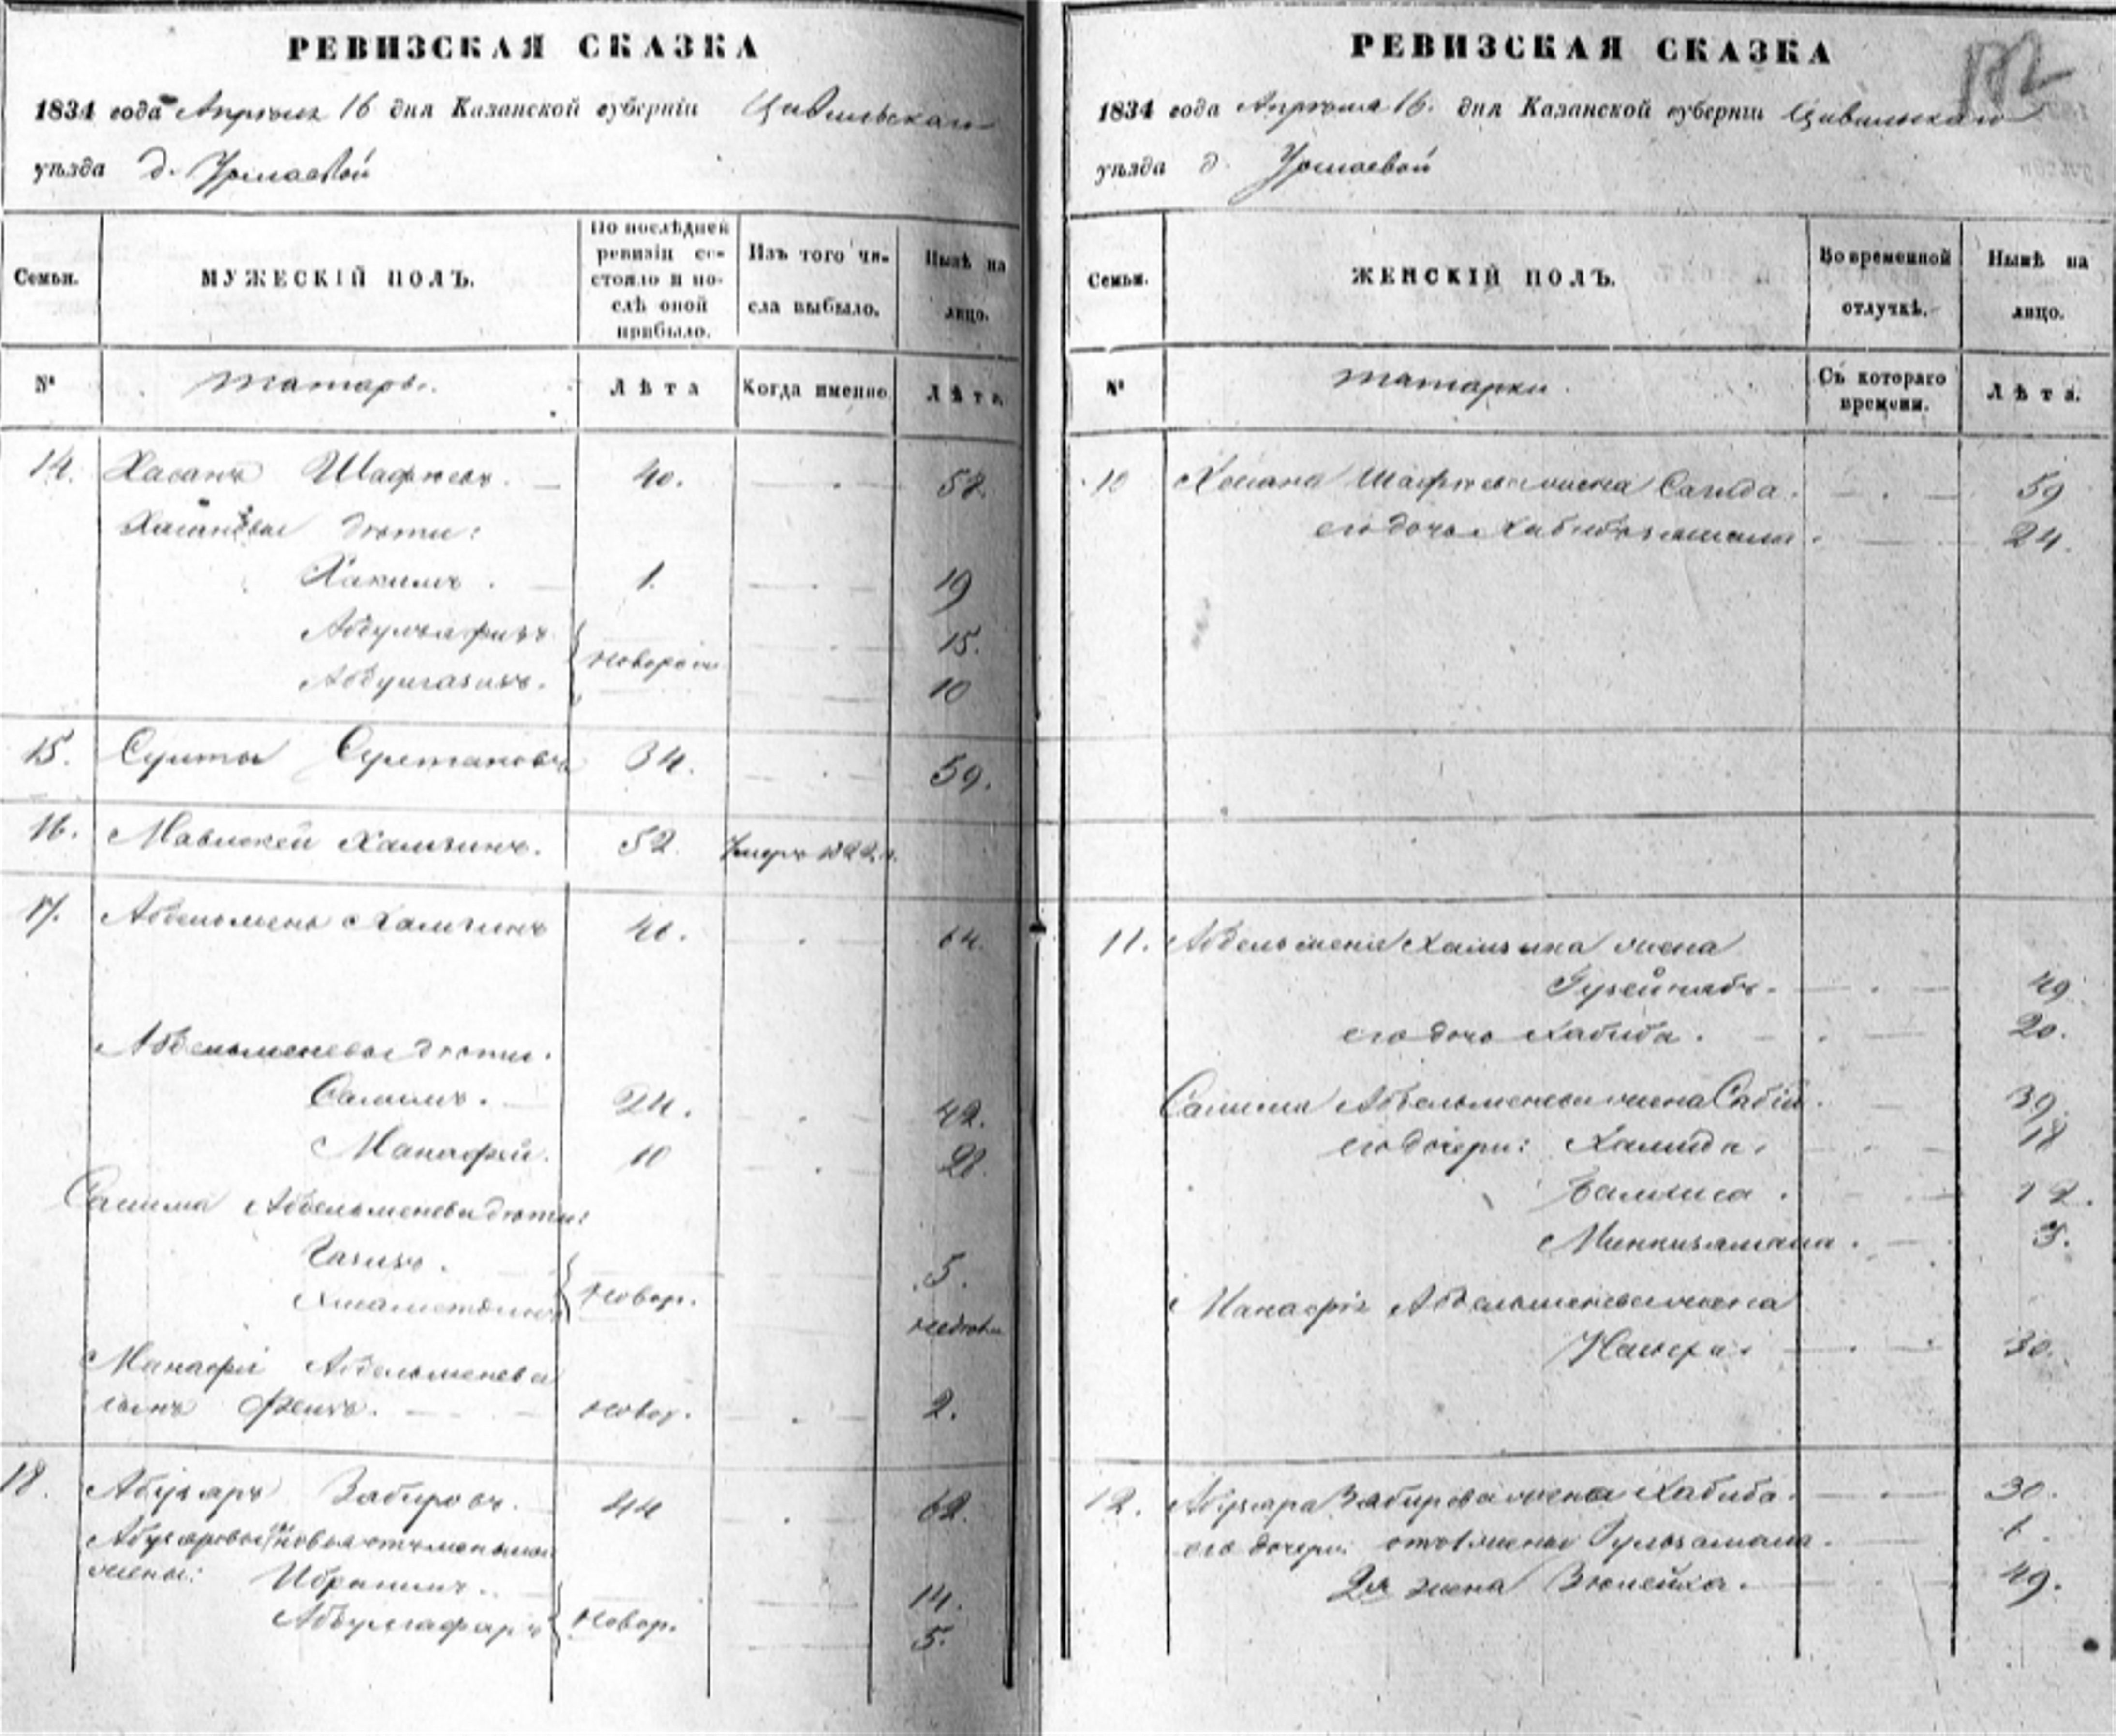 РЕВИЗСКАЯ СКАЗКА
1834 года Апреля 16 дня Казанской губерніи Цивильскаго
уѣзда д. Урмаевой
Семьи.
МУЖЕСКІЙ ПОЛЪ.
По послѣдней ревизіи состояло и послѣ оной прибыло.
Изъ того числа выбыло.
Нынѣ на лицо.
№
татары.
Лѣта
Когда именно
Лѣта.
14. Хасанъ Шафѣевъ. 40. 58.
Хасановы дѣти:
Хакимъ. 1. 19
15.
новорож
10
15. Султы Султановъ 34. 59.
16. Хамзинъ. 52. Умеръ 1822.
17. Абдельменъ Хамзинъ 46. 64.
Абдельменевы дѣти.
Салимъ. 24. 42.
Манафей. 10 28.
Салима Абдельменева дѣти:
Газизъ. 5.
новор.
недѣли
Манафѣя Абдельменева
сынъ Феизъ. новор. 2.
18. Абузяръ Забировъ. 44 62.
жены: Ибрагимъ. 14.
Абдулгафаръ новор. 5.
РЕВИЗСКАЯ СКАЗКА
1834 года Апреля 16. дня Казанской губерніи Цивильскаго
уѣзда д. Урмаевой
Семьи.
ЖЕНСКІЙ ПОЛЪ.
Во временной отлучкѣ.
Нынѣ на лицо.
№
татарки.
Съ котораго времени.
Лѣта.
10 Хасана Шафѣева жена Сагида. 59
его дочь Хабибзямала. 24.
11. Абдельменя Хамзина жена
49
его дочь Хабиба. 20.
Салима Абдельменева жена Сабіа. 39.
его дочери: Халида. 18
12.
Миннизямала. 3.
Манафѣя Абдельменева жена
30.
12. Абузяра Забирова жена Хабиба. 30.
его дочери отъ 1 жены Гульзамала. 1.
2я жена Зюлейха. 49.